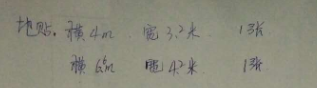 地贴. 横4m 宽3.2米 1张
横6m 宽4.2米 1张